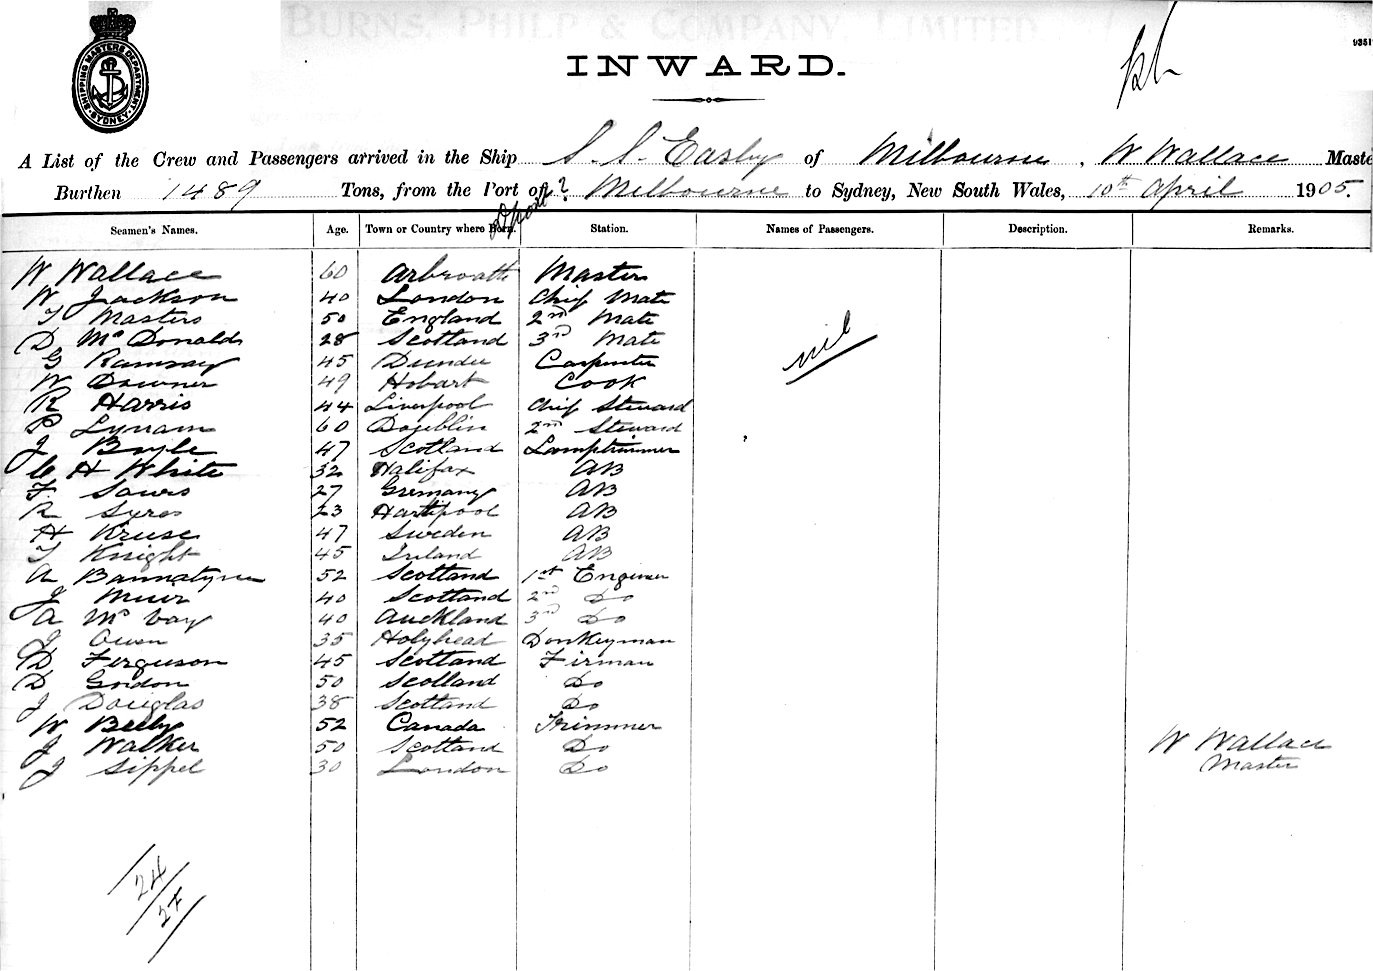 BURNS, PHILP & COMPANY, LIMITED.
9351
SHIPPING MASTERS DEPARTMENT
SYDNEY
INWARD.
A List of the Crew and Passengers arrived in the Ship S.S. Easby of Melbourne, W Wallace Maste
Burthen 1489 Tons, from the Port of ? Melbourne to Sydney, New South Wales, 10th April 1905.
Seamen's Names. Age. Town or Country where Born. Station. Names of Passengers. Description. Remarks.
W Wallace 60 Arbroath Master
W Jackson 40 London Chief Mate
T Masters 50 England 2nd Mate
D McDonald 28 Scotland 3rd Mate
nil
G Ramsay 45 Dundee Carpenter
W Downer 49 Hobart Cook
R Harris 44 Liverpool Chief Steward
P Lynam 60 Doublin 2nd Steward
J Boyle 47 Scotland Lamptrimmer
C H White 32 Halifax AB
F. Saurs 27 Gremany AB
R Syres 23 Hartlpool AB
H Kruse 47 Sweden AB
T Knight 45 Ireland AB
A Bannatyne 52 Scotland 1st Engineer
J Muir 40 Scotland 2nd Do
A McVay 40 Auckland 3rd Do
J Owen 35 Holyhead Donkeyman
D Ferguson 45 Scotland Firman
D Gordon 50 Scotland Do
J Douglas 38 Scotland Do
W Beeby 52 Canada Trimmer
J Walker 50 Scotland Do W Wallace
J Sippel 30 London Do Master
24
27